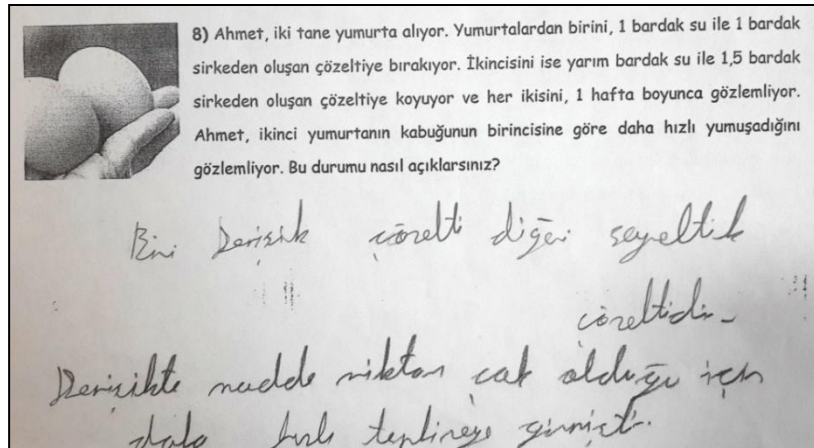 8) Ahmet, iki tane yumurta alıyor. Yumurtalardan birini, 1 bardak su ile 1 bardak
sirkeden oluşan çözeltiye bırakıyor. İkincisini ise yarım bardak su ile 1,5 bardak
sirkeden oluşan çözeltiye koyuyor ve her ikisini, 1 hafta boyunca gözlemliyor.
Ahmet, ikinci yumurtanın kabuğunun birincisine göre daha hızlı yumuşadığını
gözlemliyor. Bu durumu nasıl açıklarsınız?
Biri Derişik çözelti diğeri seyreltik
çözeltidir.
Derişikte madde miktarı çok olduğu için
daha hızlı tepkimeye girmiştir.